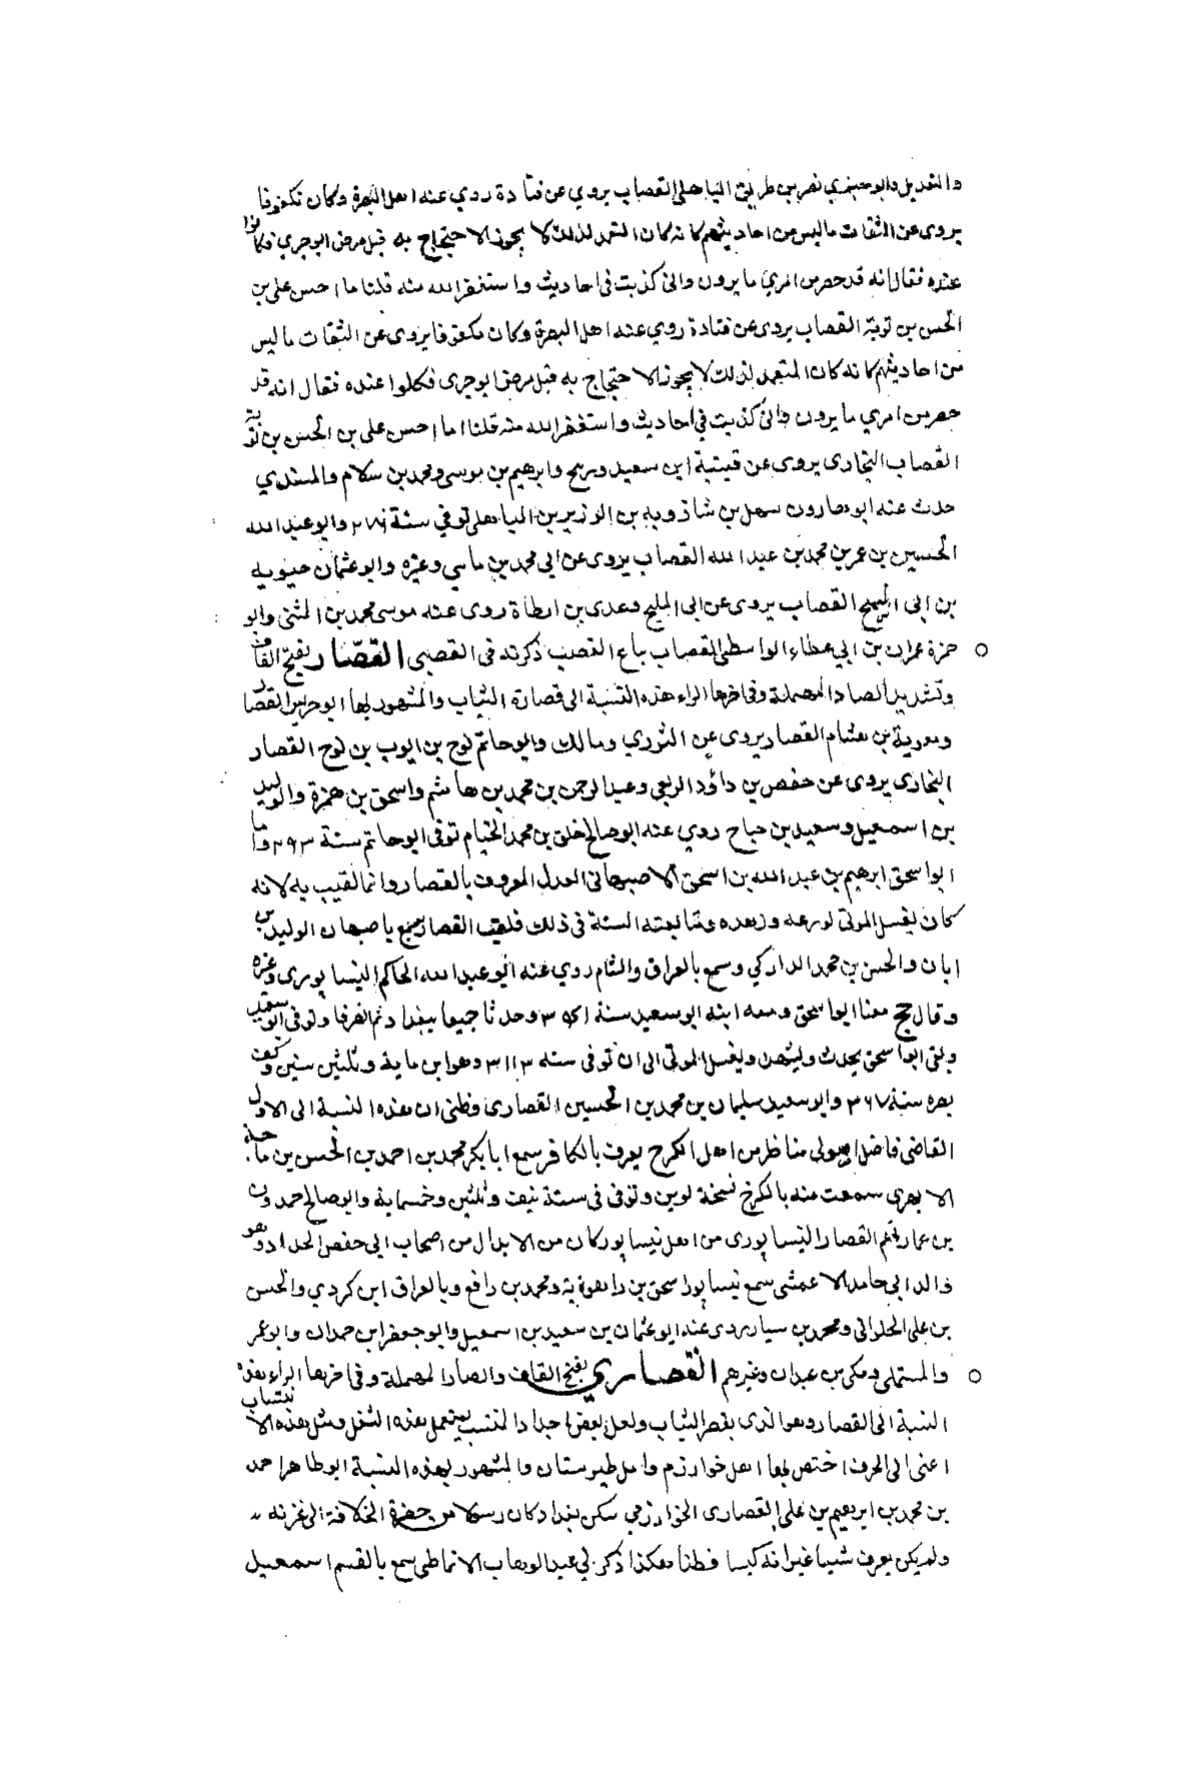 والتعديل وابو جزي نصر بن طريف الباهلي القصاب يروي عن قتادة روي عنه اهل البصرة وكان مكفوفا
يروى عن الثقات ما ليس من احاديثهم كانه كان المتعمد لذلك لا يجوز الاحتجاج به قبل مرض ابو جري فكانوا
عنده فقال انه قد حضر من امري ما يرون واني كذبت في احاديث واستغفر الله منه قلنا ما احسن علي بن
الحسن بن توبة القصاب يروى عن قتادة روي عنه اهل البصرة وكان مكفوفا يروى عن الثقات ما ليس
من احاديثهم كانه كان المتعمد لذلك لا يجوز الاحتجاج به قبل مرض ابو جرى فكلوا عنده فقال انه قد
حضر من امري ما يرون واني كذبت في احاديث واستغفر الله منه قلنا اما احسن على بن الحسن بن توبة
القصاب البخارى يروى عن قتيبة ابن سعيد وبرمح وابرهيم بن موسى ومحمد بن سلام والمسندي
حدث عنه ابو هارون سهل بن شاذويه بن الوزير بن الباهلى توفي سنة وابو عبد الله
الحسين بن عمر بن محمد بن عبد الله القصاب يروى عن ابي محمد بن ماسي وغيره وابو عثمان حيويه
بن ابي المليح القصاب يروى عن ابى المليح وعدى بن ارطاة روى عنه موسى محمد بن المثنى وابو
حمزة عمران بن ابي عطاء الواسطى القصاب باع القصب ذكرته فى القصبى القصّار بفتح القاف
وتشديد الصاد المهملة وفى اخرها الراء هذه النسبة الى قصارة الثياب والمشهور بها ابو جريس القصار
ومعوية بن هشام القصار يروى عن الثوري ومالك وابو حاتم نوح بن ايوب بن نوح القصار
البخارى يروى عن حفص بن داؤد الربعى وعبد الرحمن بن محمد بن هاشم واسحق بن حمزة والوليد
بن اسمعيل وسعيد بن جناح روي عنه ابو صالح خلف بن محمد الخيام توفى ابو حاتم سنة ٢٩٣ واما
ابو اسحق ابرهيم بن عبد الله بن اسحق الاصبهانى العدل المعروف بالقصار وانما لقب به لانه
كان يغسل الموتى لورعه وزهده ومتابعته السنة فى ذلك فلقب القصار سمع باصبهان الوليد بن
ابان والحسن بن محمد الداركي وسمع بالعراق والشام روي عنه ابو عبد الله الحاكم النيسابورى وغيره
وقال حج معنا ابو اسحق ومعه ابنه ابو سعيد سنة وحدثا جميعا ببغداد ثم انصرفا وتوفى ابو سعيد
وبقى ابو اسحق يحدث ويشهد ويغسل الموتى الى ان توفى سنه وهو ابن ماية وثلثين سنين وكف
بصره سنة ٣٦٧ وابو سعيد سليمان بن محمد بن الحسين القصارى وظنى ان هذه النسبة الى الاول
القاضى فاضل اصولى مناظر من اهل الكرج يعرف بالكافر سمع ابا بكر محمد بن احمد بن الحسن بن ماجه
الابهرى سمعت منه بالكرج نسخة لوين وتوفى فى سنة نيف وثلثين وخمسماية وابو صالح حمدون
بن عمارة القصار النيسابورى من اهل نيسابور كان من الابدال من اصحاب ابي حفص الحداد وهو
والد ابي حامد الاعمشى سمع نيسابور اسحق بن راهوية ومحمد بن رافع وبالعراق ابن كردي والحسن
بن على الحلوانى ومحمد بن سيار روى عنه ابو عثمان بن سعيد بن اسمعيل وابو جعفر ابن حمدان وابو عمر
والمستملى ومكى بن عبدان وغيرهم القصاري بفتح القاف والصاد المهملة وفى اخرها الراء هذه
النسبة الى القصار وهو الذى يقصر الثياب ولعل بعض اجداد المنتسب يعمل هذه الشغل ومثل هذه الانتساب
اعنى الى الحرف اختص بها اهل خوارزم واهل طبرستان والمشهور بهذه النسبة ابو طاهر احمد
بن محمد بن ابرهيم بن على القصارى الخوارزمي سكن بغداد كان رسولا من حضرة الخلافة الى غزنه
ولم يكن يعرف شيا غير انه كيسا فطنا هكذا ذكر لي عبد الوهاب الانماطى سمع بالقسم اسمعيل